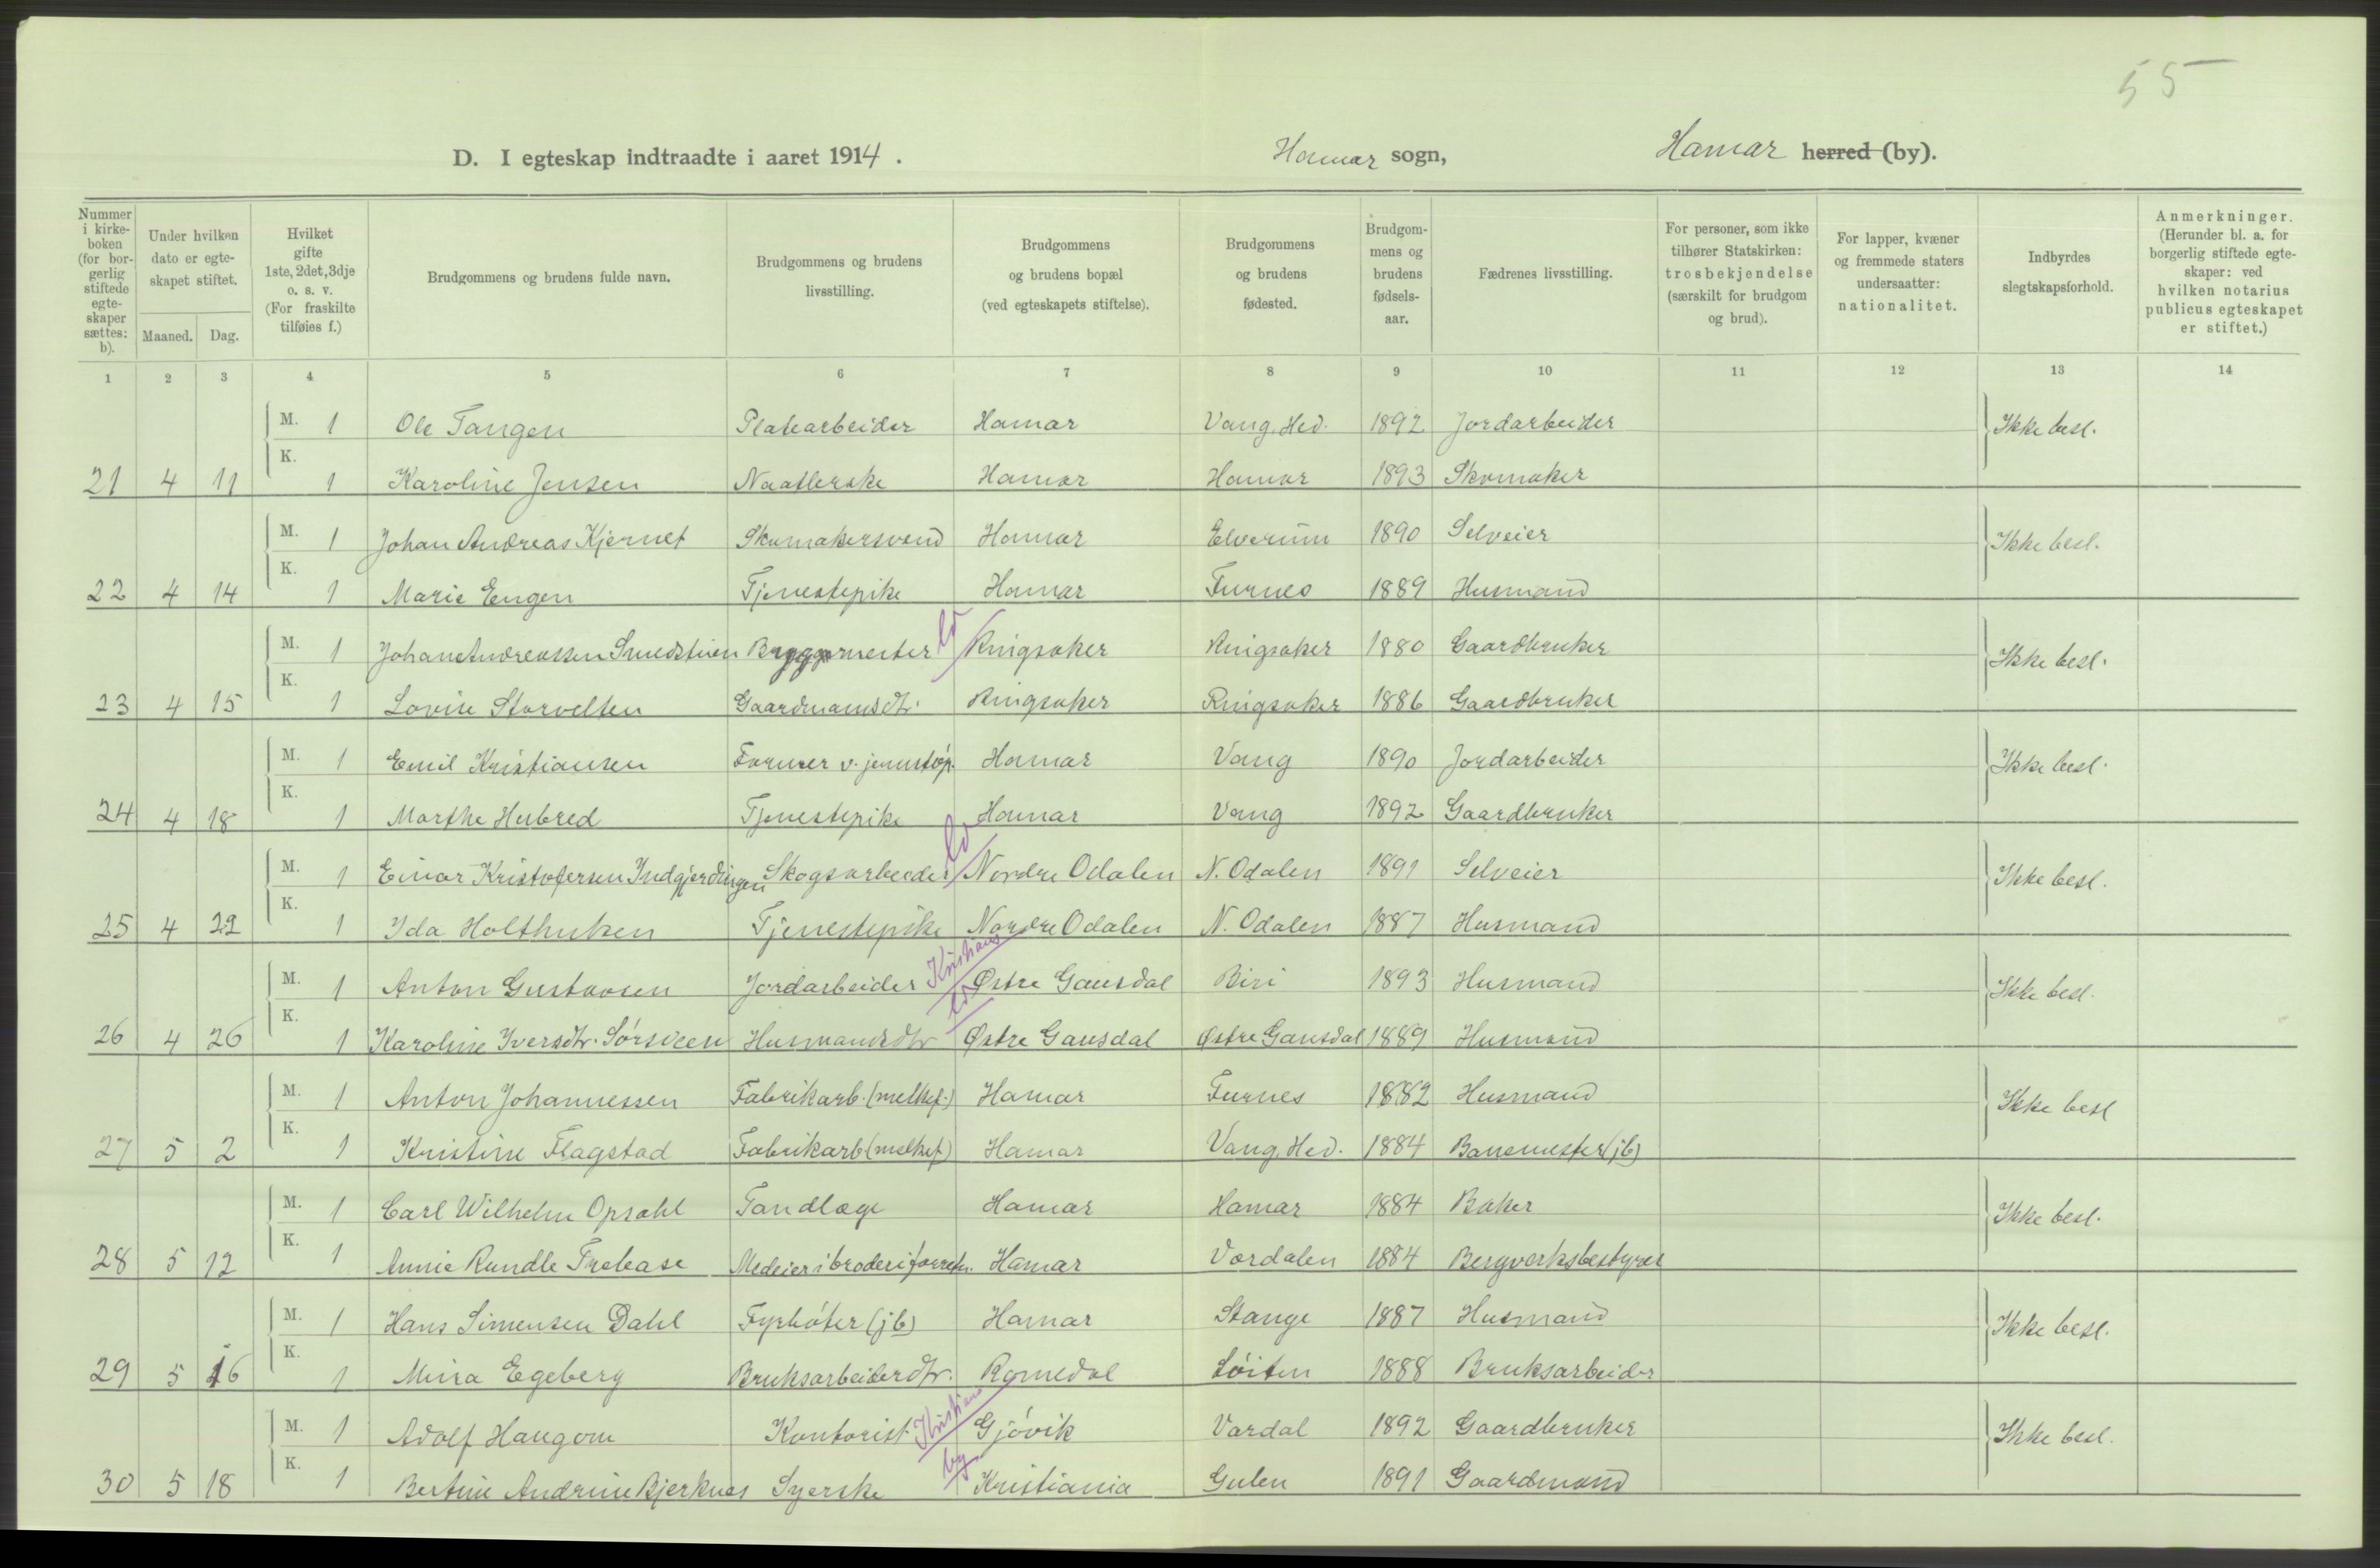 55
D. I egteskap indtraadte i aaret 1914. Hamar sogn, Hamar herred (by).
Nummer i kirkeboken (for borgerlig stiftede egteskaper sættes: b).
Under hvilken dato er egteskapet stiftet.
Maaned. Dag.
Hvilket gifte 1ste, 2det, 3dje o. s. v. (For fraskilte tilføies f.)
Brudgommens og brudens fulde navn.
Brudgommens og brudens livsstilling.
Brudgommens og brudens bopæl (ved egteskapets stiftelse).
Brudgommens og brudens fødested.
Brudgommens og brudens fødselsaar.
Fædrenes livsstilling.
For personer, som ikke tilhører Statskirken: trosbekjendelse (særskilt for brudgom og brud).
For lapper, kvæner og fremmede staters undersaatter: nationalitet.
Indbyrdes slegtskapsforhold.
Anmerkninger. (Herunder bl. a. for borgerlig stiftede egteskaper: ved hvilken notarius publicus egteskapet er stiftet.)
1 2 3 4 5 6 7 8 9 10 11 12 13 14
M. 1 Ole Tangen Platearbeider Hamar Vang, Hed. 1892 Jordarbeider Ikke besl.
21 4 11 K. 1 Karoline Jensen Naatlerske Hamar Hamar 1893 Skomaker
M. 1 Johan Andreas Kjernet Skomakersvend Hamar Elverum 1890 Selveier Ikke besl.
22 4 14 K. 1 Marie Engen Tjenestepike Hamar Furnes 1889 Husmand
M. 1 Johan Andreassen Smedstuen Byggmester ld Ringsaker Ringsaker 1880 Gaardbruker Ikke besl.
23 4 15 K. 1 Lovise Storvelten Gaardmandsdtr. Ringsaker Ringsaker 1886 Gaardbruker
M. 1 Emil Kristiansen Former v. jernstøp. Hamar Vang 1890 Jordarbeider Ikke besl.
24 4 18 K. 1 Marthe Hubred Tjenestepike Hamar Vang 1892 Gaardbruker
M. 1 Einar Kristofersen Indgjerdingen Skogsarbeider ld Nordre Odalen N. Odalen 1891 Selveier Ikke besl.
25 4 22 K. 1 Ida Holthuken Tjenestepike Nordre Odalen N. Odalen 1887 Husmand
M. 1 Anton Gustavsen Jordarbeider Kristians ld Østre Gausdal Biri 1893 Husmand Ikke besl.
26 4 26 K. 1 Karoline Iversdtr. Sørsveen Husmandsdtr Østre Gausdal Østre Gausdal 1889 Husmand
M. 1 Anton Johannessen Fabrikarb. (melkef.) Hamar Furnes 1882 Husmand Ikke besl
27 5 2 K. 1 Kristine Flagstad Fabrikarb (melkef) Hamar Vang, Hed. 1884 Banemester (jb)
M. 1 Carl Wilhelm Opsahl Tandlæge Hamar Hamar 1884 Baker Ikke besl.
28 5 12 K. 1 Annie Rundle Trelease Medeier i broderiforretn. Hamar Værdalen 1884 Bergverksbestyrer
M. 1 Hans Simensen Dahl Fyrbøter (jb) Hamar Stange 1887 Husmand Ikke besl.
29 5 16 K. 1 Mina Egeberg Bruksarbeiderdtr. Romedal Løiten 1888 Bruksarbeider
M. 1 Adolf Haugom Kontorist Kristians by Gjøvik Vardal 1892 Gaardbruker Ikke besl.
30 5 18 K. 1 Bertine Andrine Bjerknes Syerske Kristiania Gulen 1891 Gaardmand